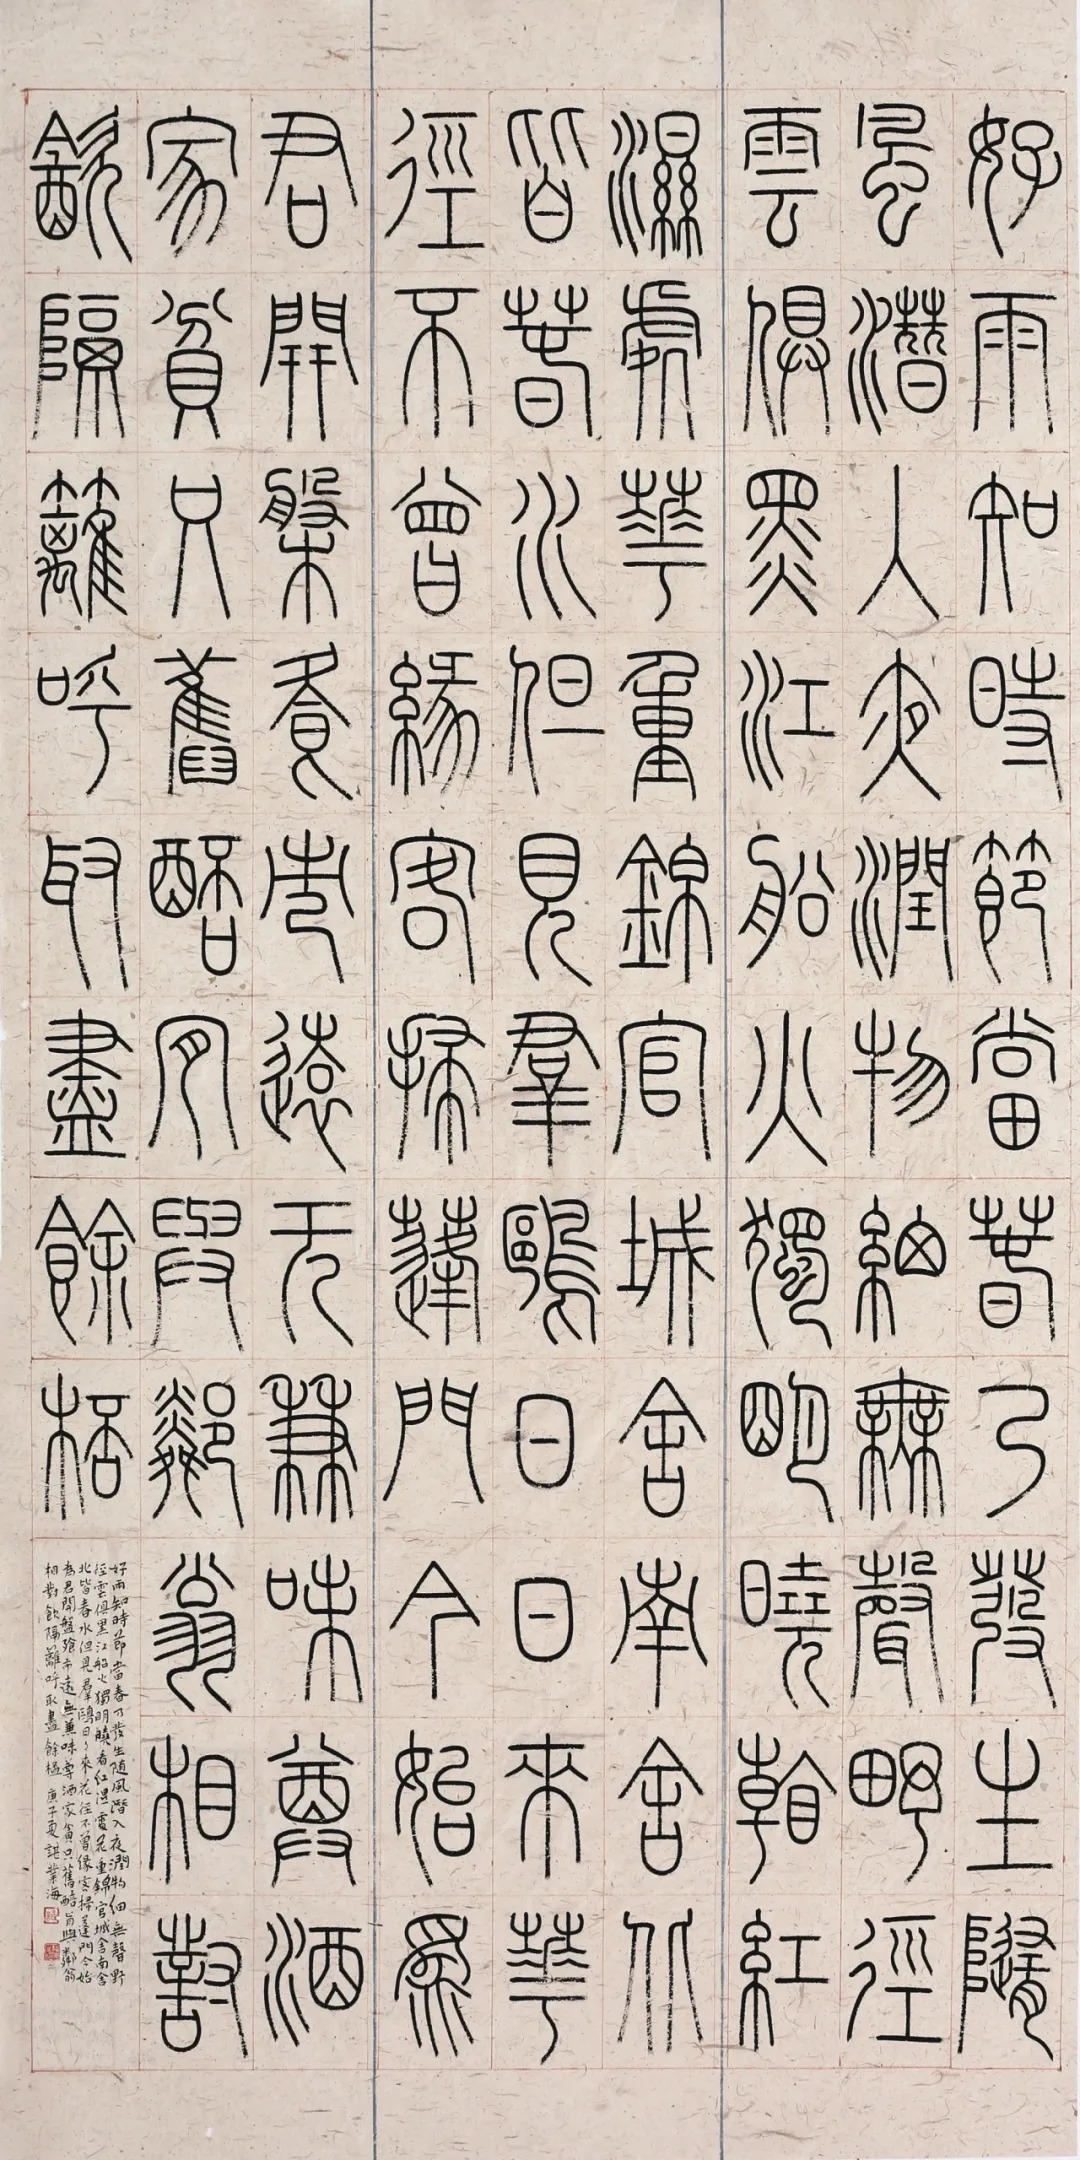 好雨知時節當春乃發生隨
風潛入夜潤物細無聲野徑
雲俱黑江船火獨明曉看紅
濕處華重錦官城舍南舍北
皆春水但見羣鷗日日來華
徑不曾緣客掃蓬門今始爲
君開槃飧市遠无兼味尊酒
家貧只舊醅肎與鄰翁相對
飲隔籬呼取盡餘桮
好雨知時節當春乃發生随風潛入夜潤物細無聲野
徑雲俱黑江船火獨明曉看紅濕處花重錦官城舍南舍
北皆春水但見羣鷗日〻來花徑不曾緣客掃蓬門今始
為君開盤飧市遠無兼味尊酒家貧只舊醅肯與鄰翁
相對飲隔籬呼取盡餘桮 庚子夏諶業海